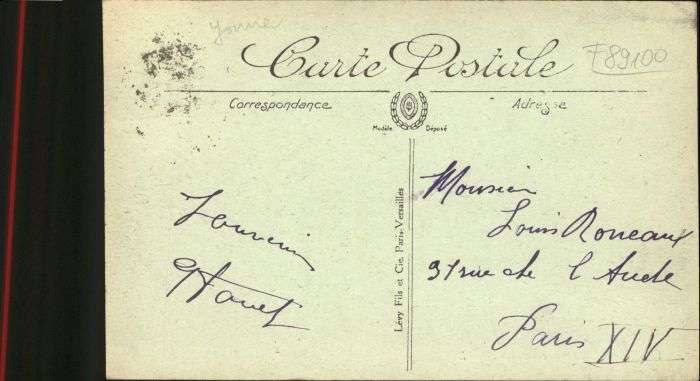 Yonne
F89100
Carte Postale
Correspondance
Adresse
Modèle Déposé
Souvenir
Lévy Fils et Cie, Paris-Versailles
Monsieur
Louis
rue de l'Aude
Paris XIV